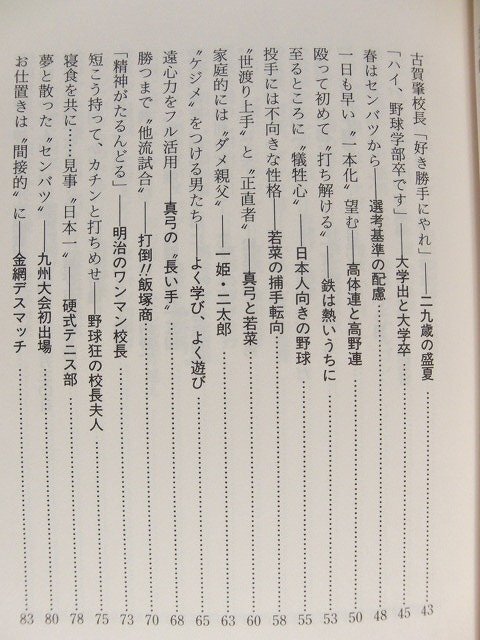 古賀肇校長「好き勝手にやれ」――二九歳の盛夏……43
「ハイ、野球学部卒です」――大学出と大学卒……45
春はセンバツから――選考基準の配慮……48
一日も早い〝一本化〟望む――高体連と高野連……50
殴って初めて〝打ち解ける〟――鉄は熱いうちに……53
至るところに〝犠牲心〟――日本人向きの野球……55
投手には不向きな性格――若菜の捕手転向……58
〝世渡り上手〟と〝正直者〟――真弓と若菜……60
家庭的には〝ダメ親父〟――一姫・二太郎……63
〝ケジメ〟をつける男たち――よく学び、よく遊び……65
遠心力をフル活用――真弓の〝長い手〟……68
勝つまで〝他流試合〟――打倒!!飯塚商……70
「精神がたるんどる」――明治のワンマン校長……73
短こう持って、カチンと打ちめせ――野球狂の校長夫人……75
寝食を共に……見事〝日本一〟――硬式テニス部……78
夢と散った〝センバツ〟――九州大会初出場……80
お仕置きは〝間接的〟に――金網デスマッチ……83